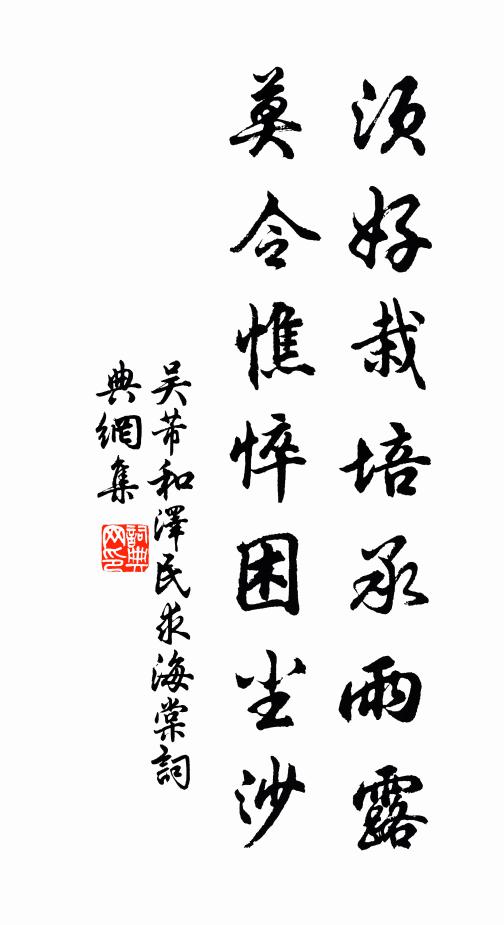 須好栽培承雨露
莫令憔悴困尘沙
吴芾和澤民求海棠詞
典網集
詞典
网印